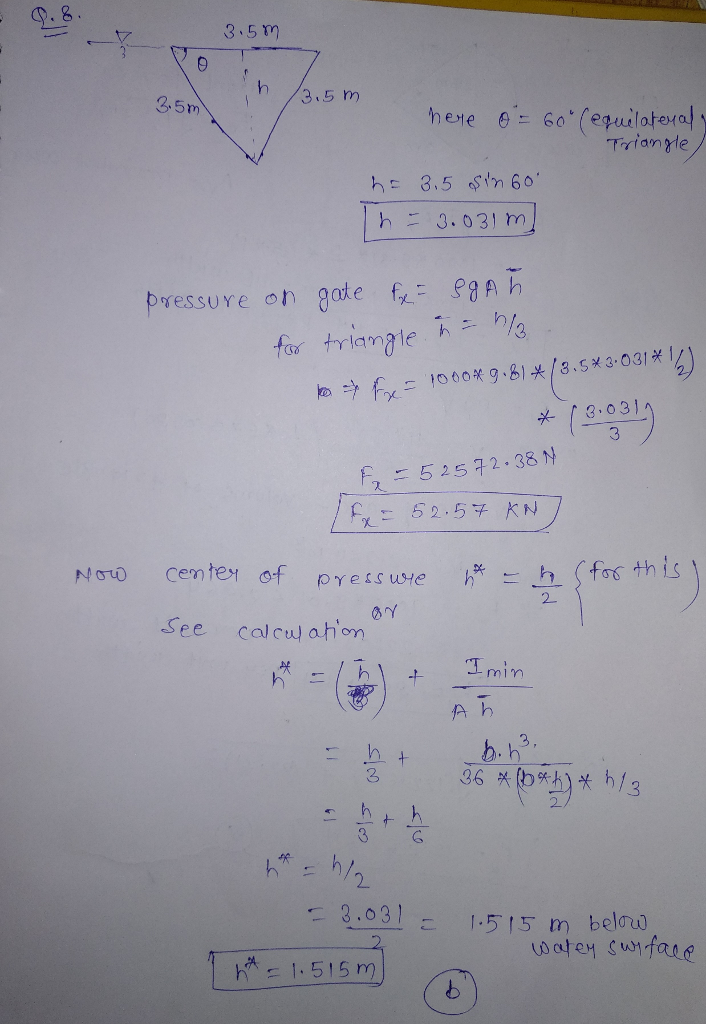 Q.8.
3.5m
θ
h
3.5m
3.5 m
here θ = 60° (equilateral
Triangle)
h = 3.5 sin60°
h = 3.031 m
pressure on gate Fx = ρgAh̄
for triangle h̄ = h/3
⇒ Fx = 1000*9.81*(3.5*3.031*1/2)
* (3.031/3)
Fx = 52572.38N
Fx = 52.57 KN
Now center of pressure h* = h/2 {for this}
or
See calculation
h* = (h̄) + Imin/Ah̄
= h/3 + b.h³/36*(b*h/2)*h/3
= h/3 + h/6
h* = h/2
= 3.031/2 = 1.515 m below
water surface
h* = 1.515m
b